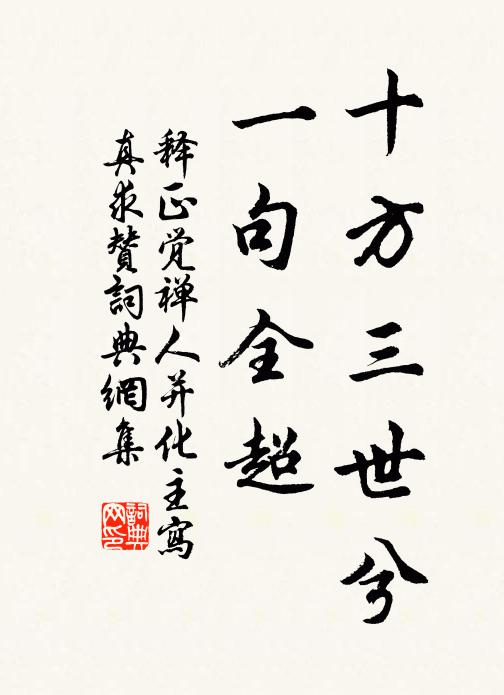 十方三世兮
一句全超
释正觉禅人并化主寫
真求赞詞典網集
詞典
网印